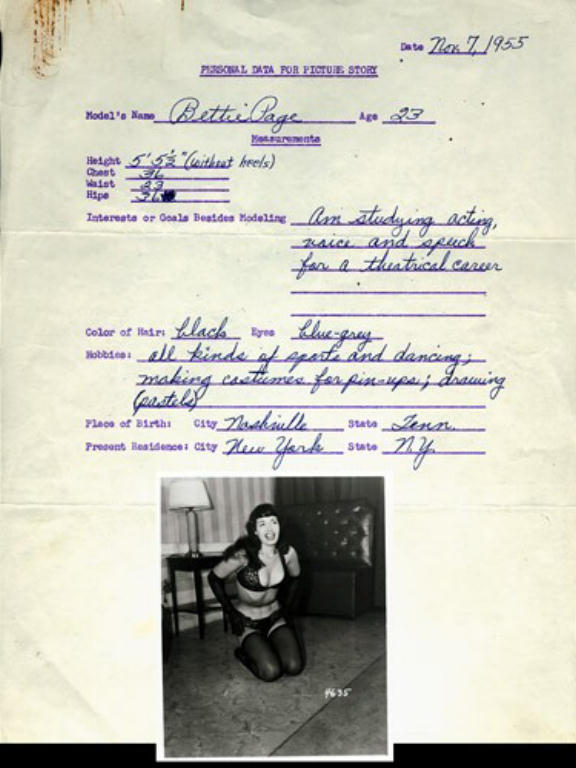 Date Nov. 7, 1955
PERSONAL DATA FOR PICTURE STORY
Model's Name Bettie Page Age 23
Measurements
Height 5' 5½" (without heels)
Chest 36
Waist 23
Hips
Interests or Goals Besides Modeling Am studying acting,
voice and speech
for a theatrical career
Color of Hair: black Eyes blue-grey
Hobbies: all kinds of sports and dancing;
making costumes for pin-ups; drawing
(pastels)
Place of Birth: City Nashville State Tenn.
Present Residence: City New York State N.Y.
4635